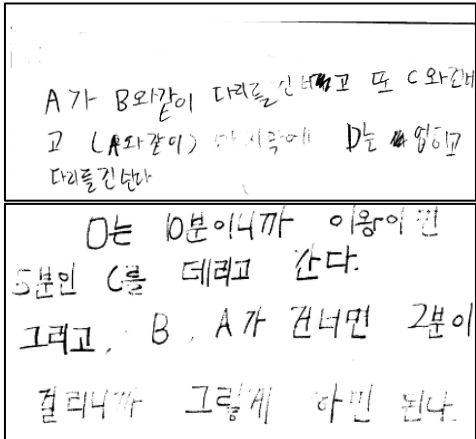 A가 B와같이 다리를 건너고 또 C와건너
고 (A와같이) 마지막에 D는 업히고
다리를 건넌다
D는 10분이니까 이왕이면
5분인 C를 데리고 간다.
그리고, B, A가 건너면 2분이
걸리니까 그렇게 하면 된다.